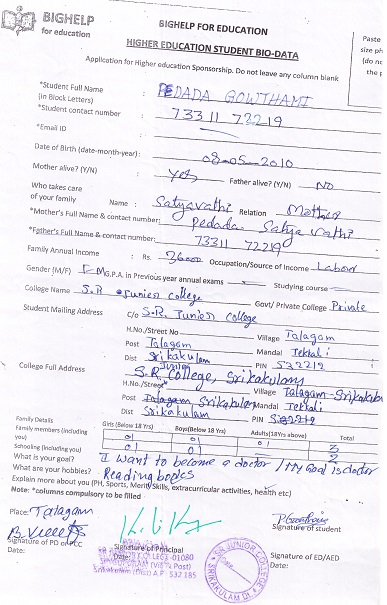 BIGHELP
for education
BIGHELP FOR EDUCATION
HIGHER EDUCATION STUDENT BIO-DATA
Paste
size ph
(do no
the p
Application for Higher education Sponsorship. Do not leave any column blank
*Student Full Name : PEDADA GOWTHAMI
(in Block Letters)
*Student contact number : 73311 72219
*Email ID :
Date of Birth (date-month-year) : 08-05-2010
Mother alive? (Y/N) : yes Father alive? (Y/N) NO
Who takes care
of your family Name : Satyavathi Relation Mother
*Mother's Full Name & contact number: Pedada. Satya vathi
*Father's Full Name & contact number: 73311 72219
Family Annual Income : Rs. 26000 Occupation/Source of Income Labour
Gender (M/F) : F G.P.A. in Previous year annual exams Studying course
College Name : S.R Junior college Govt/ Private College Private
Student Mailing Address C/o S.R. Junior college
H.No./Street No Village Talagam
Post Talagam Mandal Tekkali
Dist Srikakulam PIN 532219
College Full Address S.R. Junior College, Srikakulam
H.No./Street Village Talagam - Srikakulam
Post Talagam Srikakulam Mandal Tekkali
Dist Srikakulam PIN 532219
Family Details Girls (Below 18 Yrs) Boys(Below 18 Yrs) Adults(18Yrs above) Total
Family members (including you) 01 01
Schooling (including you) 01 01
What is your goal? I want to become a doctor / My Goal is doctor
What are your hobbies? Reading books
Explain more about you (PH, Sports, Merit/Skills, extracurricular activities, health etc)
Note: *columns compulsory to be filled
Place: Talagam
Signature of PD or PCC
Date:
Signature of Principal
Date:
Signature of student
Signature of ED/AED
Date:
SR JUNIOR COLLEGE
SRIKAKULAM